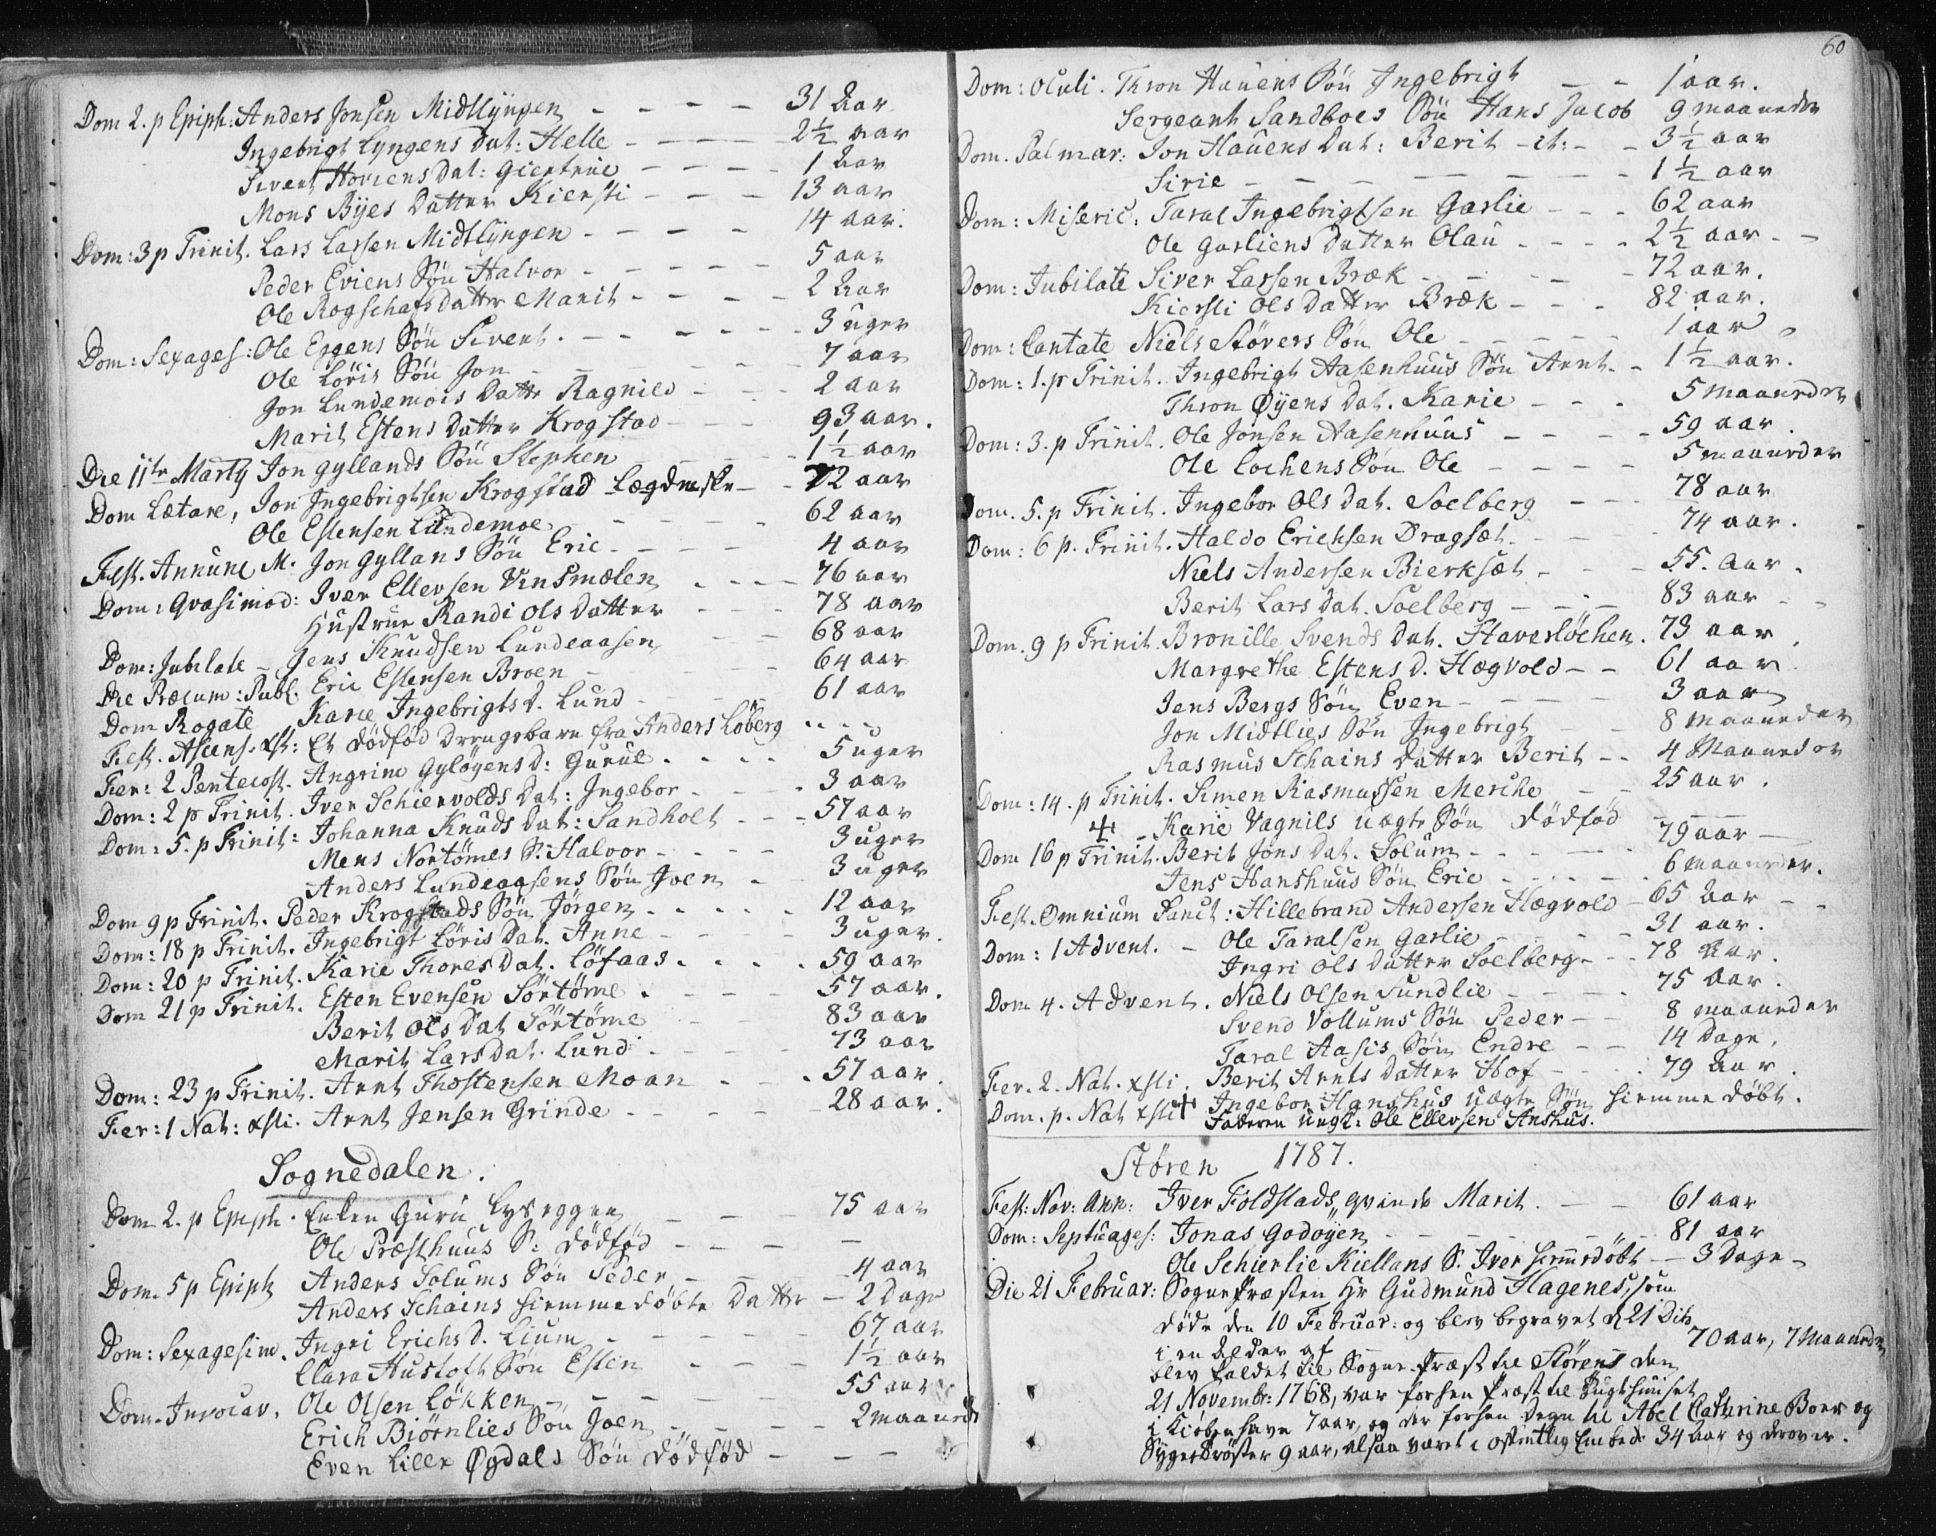 Dom 2. p Epiph: Anders Jonsen Midtlyngen - - - - 31 aar
Ingebrigt Lyngens Dat: Helle - - - - 2½ aar
Sivert Hovens Dat: Giertrue - - - - 1 aar
Mons Byes Datter Kiersti - - - 13 aar
Dom: 3 p Trinit. Lars Larsen Midtlyngen - - - - 14 aar.
Peder Eviens Søn Halvor - - - - - 5 aar
Ole Rogschafs Datter Marit - - - - - 2 aar
Dom: Sexages: Ole Eggens Søn Sivert. - - - - - 3 uger
Ole Löris Søn Jon - - - - 7 aar
Jon Lundemois Datter Ragnild - - - 2 aar
Marit Estens Datter Krogstad - - - 93 aar.
Die 11te Marty Jon Gyllands Søn Stephen - - - - 1½ aar
Dom Lætare, Jon Ingebrigtsen Krogstad Lægdmske - - 72 aar
Ole Estensen Lundemoe - - - - 62 aar
Fest. Annunc M. Jon Gyllans Søn Eric - - - - 4 aar
Dom: Qvasimod: Iver Ellevsen Vinsmælen - - - - 76 aar
Hustrue Randi Ols Datter - - - 78 aar
Dom: Jubilate - Jens Knudsen Lundeaasen - - 68 aar
Die Præcum: Publ. Eric Estensen Broen - - - - 64 aar
Dom Rogate Karie Ingebrigts D. Lund - - - - 61 aar
Fest. Ascens. Xsti: Et dødfød Drengebarn fra Anders Löberg - - -
Fer: 2 Pentecost. Angrim Gylöyens D: Guruë. - - - - 5 uger
Dom: 2 p Trinit. Iver Schiervolds Dat: Ingebor - - - - 3 aar
Dom: 5. p Trinit: Johanna Knuds Dat: Sandholt - - - 57 aar
Mens Nortömes S. Halvor - - - - 3 uger
Anders Lundeaasens Søn Joen - - 3 uger
Dom 9 p Trinit. Peder Krogstads Søn Jörgen - - - - - 12 aar
Dom: 18 p Trinit. Ingebrigt Löris Dat. Anne - - - - 3 uger.
Dom: 20 p Trinit. Karie Thores Dat. Löfaas. - - - - 59 aar
Dom 21 p Trinit. Esten Evensen Sörtöme - - - - 57 aar.
Berit Ols Dat Sörtöme - - 83 aar
Marit Lars Dat. Lund - - - - 73 aar
Dom: 23 p Trinit. Arnt Thostensen Moan - - - 57 aar.
Fer: 1 Nat: Xsti. Arnt Jensen Grinde - - - - - 28 aar.
Sognedalen.
Dom 2. p Epiph. Enken Guru Lyseggen - - - 75 aar
Ole Præsthuus S: dödföd - - - -
Dom. 5 p Epiph Anders Solums Søn Peder - - - 4 aar
Anders Schains hiemmedöbte Datter - 2 Dage
Dom: Sexagesim. Ingri Erichs D. Lium - - - - - 67 aar
Clara Hustoft Søn Esten - - - 1½ aar
Dom. Invocav. Ole Olsen Lökken - - - - - 55 aar
Erich Biörnlies Søn Joen - - - - 2 maaneder
Even Lille Øgdals Søn dödfød - - -
60
Dom: Oculi. Thron Hauens Søn Ingebrigt - - 1 aar.
Sergeant Sandboes Søn Hans Jacob 9 maaneder
Dom. Palmar: Jon Hauens Dat: Berit - et: - - 3½ aar
Sirie - - - - - - - 1½ aar
Dom: Miseric: Taral Ingebrigtsen Garlie - - - 62 aar
Ole Garliens Datter Olau - - - - 2½ aar - -
Dom: Jubilate Siver Larsen Bræk - - - - - 72 aar.
Kiersti Ols Datter Bræk - - - 82 aar.
Dom: Cantate Niels Störers Søn Ole - - - - - 1 aar
Dom: 1. p Trinit. Ingebrigt Aasenhuus Søn Arnt. - 1½ aar.
Thron Øyens Dat. Karie - - - 5 maaneder
Dom: 3. p Trinit. Ole Jonsen Aasenhuus - - - - 59 aar.
Ole Lochens Søn Ole - - - - 5 maaneder
Dom. 5. p Trinit. Ingebor Ols Dat. Soelberg - - - 78 aar
Dom: 6 p. Trinit. Haldo Erichsen Dragsæt. - - - - 74 aar.
Niels Andersen Bierksæt - - - 55. aar.
Berit Lars Dat. Soelberg - - - 83 aar - -
Dom. 9 p Trinit. Bronille Svends Dat. Staverlöchen. 73 aar
Margrethe Estens D. Hægvold - - 61 aar
Jens Bergs Søn Even - - - 3 aar
Jon Midtlies Søn Ingebrigt - - 8 maaneder
Rasmus Schains Datter Berit - - 4 Maaneder
Dom: 14. p Trinit. Simen Rasmussen Merche - - 25 aar.
+ - Karie Vagnils uægte Søn dödföd - -
Dom 16 p Trinit. Berit Jons Dat. Solum - - - - - 79 aar -
Jens Hanshuus Søn Eric - - - - - 6 maaneder.
Fest. Omnium Sanct: Hillebrand Andersen Hægvold - 65 aar - -
Dom: 1 Advent. - Ole Taralsen Garlie - - - - - 31 aar.
Ingri Ols Datter Soelberg - - - 78 aar.
Dom 4. Advent. Niels Olsen Sundlie - - - - 75 aar.
Svend Vollums Søn Peder - - 8 maaneder
Taral Aasis Søn Endre - - 14 Dage.
Fer. 2. Nat. Xsti. Berit Arnts Datter Hof - - - - 79 aar.
Dom. p. Nat Xsti + Ingebor Hanshus uægte Søn hiemmedöbt.
Faderen Ungk: Ole Ellevsen Anshus.
Støren 1787.
Fest: Nov: Ann: Iver Foldstads qvinde Marit. - - 61 aar
Dom: Septuages: Jonas Godöyen - - - - - 81 aar
Ole Schierlie Kiellans S. Iver hiemedöbt - 3 Dage -
Die 21 Februar: SognePræsten Hr Gudmund Hagenes, som
døde den 10 Februar: og blev begravet d 21 Dito
i en Alder af 70 aar, 7 Maaneder
blev kaldet til Sogne-Præst til Störens den
21 Novembr: 1768, var forhen Præst til Tugthuuset
i Kiöbenhavn 7 aar, og der forhen Degn til Abel Cathrine Boer og
Sygetröster 9 aar, altsaa været i offentlig Embede 34 aar og derover.